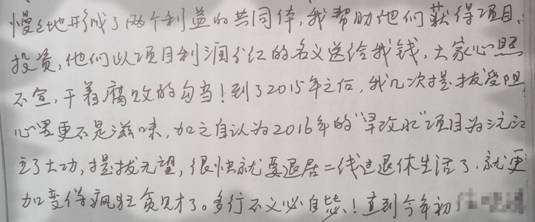 慢慢地形成了两个利益的共同体，我帮助他们获得项目、
投资，他们以项目利润分红的名义送给我钱，大家心照
不宣，干着腐败的勾当！到了2015年之后，我几次提拔受阻
心里更不是滋味，加之自认为2016年的"旱改水"项目为三元江
立了大功，提拔无望，很快就要退居二线过退休生活了，就更
加变得疯狂贪财了。多行不义必自毙！直到今年初